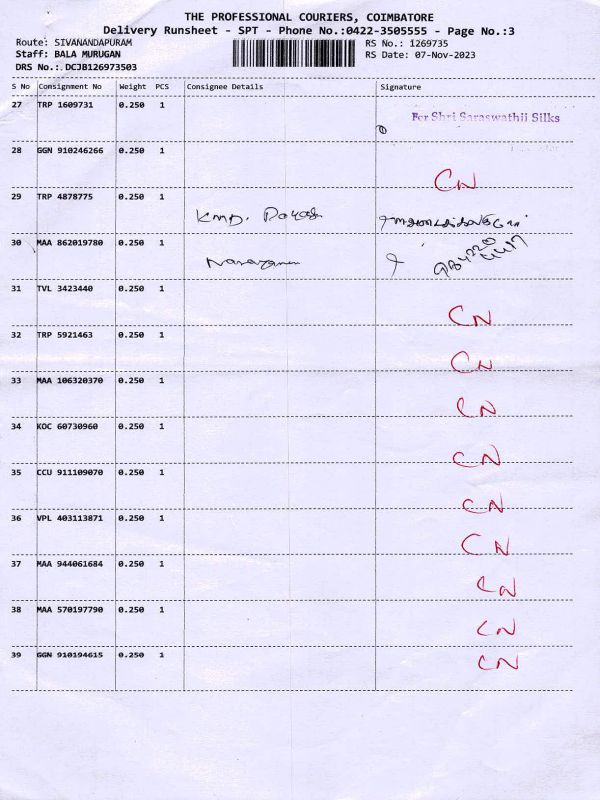 THE PROFESSIONAL COURIERS, COIMBATORE
Delivery Runsheet - SPT - Phone No.:0422-3505555 - Page No.:3
Route: SIVANANDAPURAM RS No.: 1269735
Staff: BALA MURUGAN RS Date: 07-Nov-2023
DRS No.: DCJB126973503
S No Consignment No Weight PCS Consignee Details Signature
27 TRP 1609731 0.250 1 For Shri Saraswathii Silks
28 GGN 910246266 0.250 1 CN
29 TRP 4878775 0.250 1
30 MAA 862019780 0.250 1 Narayanan
31 TVL 3423440 0.250 1 CN
32 TRP 5921463 0.250 1 CN
33 MAA 106320370 0.250 1 CN
34 KOC 60730960 0.250 1 CN
35 CCU 911109070 0.250 1 CN
36 VPL 403113871 0.250 1 CN
37 MAA 944061684 0.250 1 CN
38 MAA 570197790 0.250 1 CN
39 GGN 910194615 0.250 1 CN